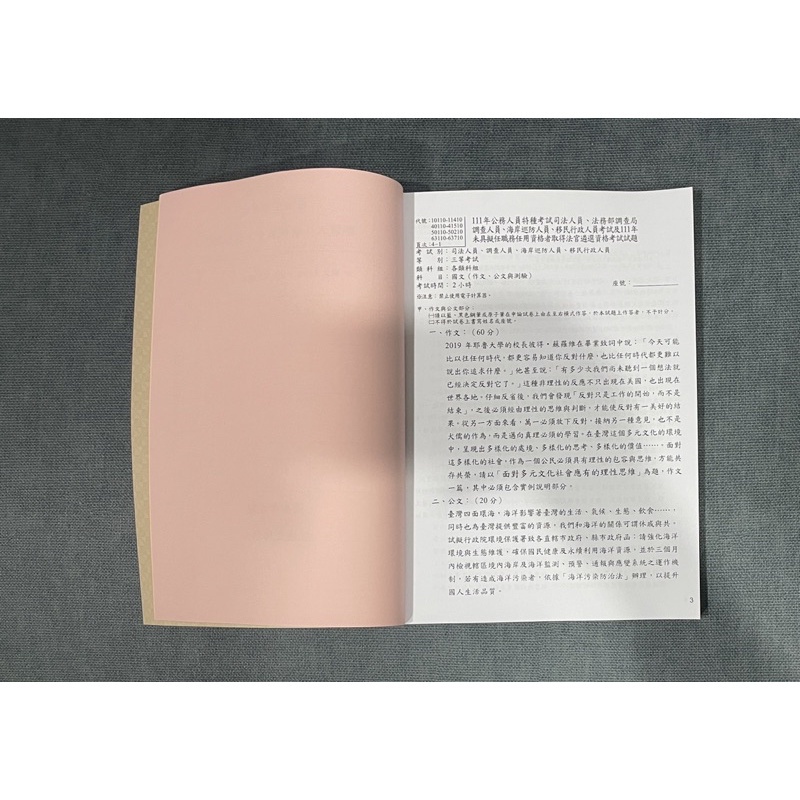 代號：10110-11410
40110-41510
50110-50210
63110-63710
頁次：4-1
111年公務人員特種考試司法人員、法務部調查局
調查人員、海岸巡防人員、移民行政人員考試及111年
未具擬任職務任用資格者取得法官遴選資格考試試題
考試別：司法人員、調查人員、海岸巡防人員、移民行政人員
等別：三等考試
類科組：各類科組
科目：國文（作文、公文與測驗）
考試時間：2小時 座號：
※注意：禁止使用電子計算器。
甲、作文與公文部分：
㈠請以藍、黑色鋼筆或原子筆在申論試卷上由左至右橫式作答，於本試題上作答者，不予計分。
㈡不得於試卷上書寫姓名或座號。
一、作文：（60分）
2019年耶魯大學的校長彼得‧蘇羅維在畢業致詞中說：「今天可能
比以往任何時代，都更容易知道你反對什麼，也比任何時代都更難以
說出你追求什麼。」他甚至說：「有多少次我們尚未聽到一個想法就
已經決定反對它了。」這種非理性的反應不只出現在美國，也出現在
世界各地。仔細反省後，我們會發現「反對只是工作的開始，而不是
結束」，之後必須經由理性的思維與判斷，才能使反對有一美好的結
果。從另一方面來看，萬一必須放下反對，接納另一種意見，也不是
犬儒的作為，而是邁向真理必須的學習。在臺灣這個多元文化的環境
中，呈現出多樣化的處境、多樣化的思考、多樣化的價值……，面對
這多樣化的社會，作為一個公民必須具有理性的包容與思維，方能共
存共榮。請以「面對多元文化社會應有的理性思維」為題，作文
一篇，其中必須包含實例說明部分。
二、公文：（20分）
臺灣四面環海，海洋影響著臺灣的生活、氣候、生態、飲食……，
同時也為臺灣提供豐富的資源，我們和海洋的關係可謂休戚與共。
試擬行政院環境保護署致各直轄市政府、縣市政府函：請強化海洋
環境與生態維護，確保國民健康及永續利用海洋資源，並於三個月
內檢視轄區境內海岸及海洋監測、預警、通報與應變系統之運作機
制，若有造成海洋污染者，依據「海洋污染防治法」辦理，以提升
國人生活品質。
3